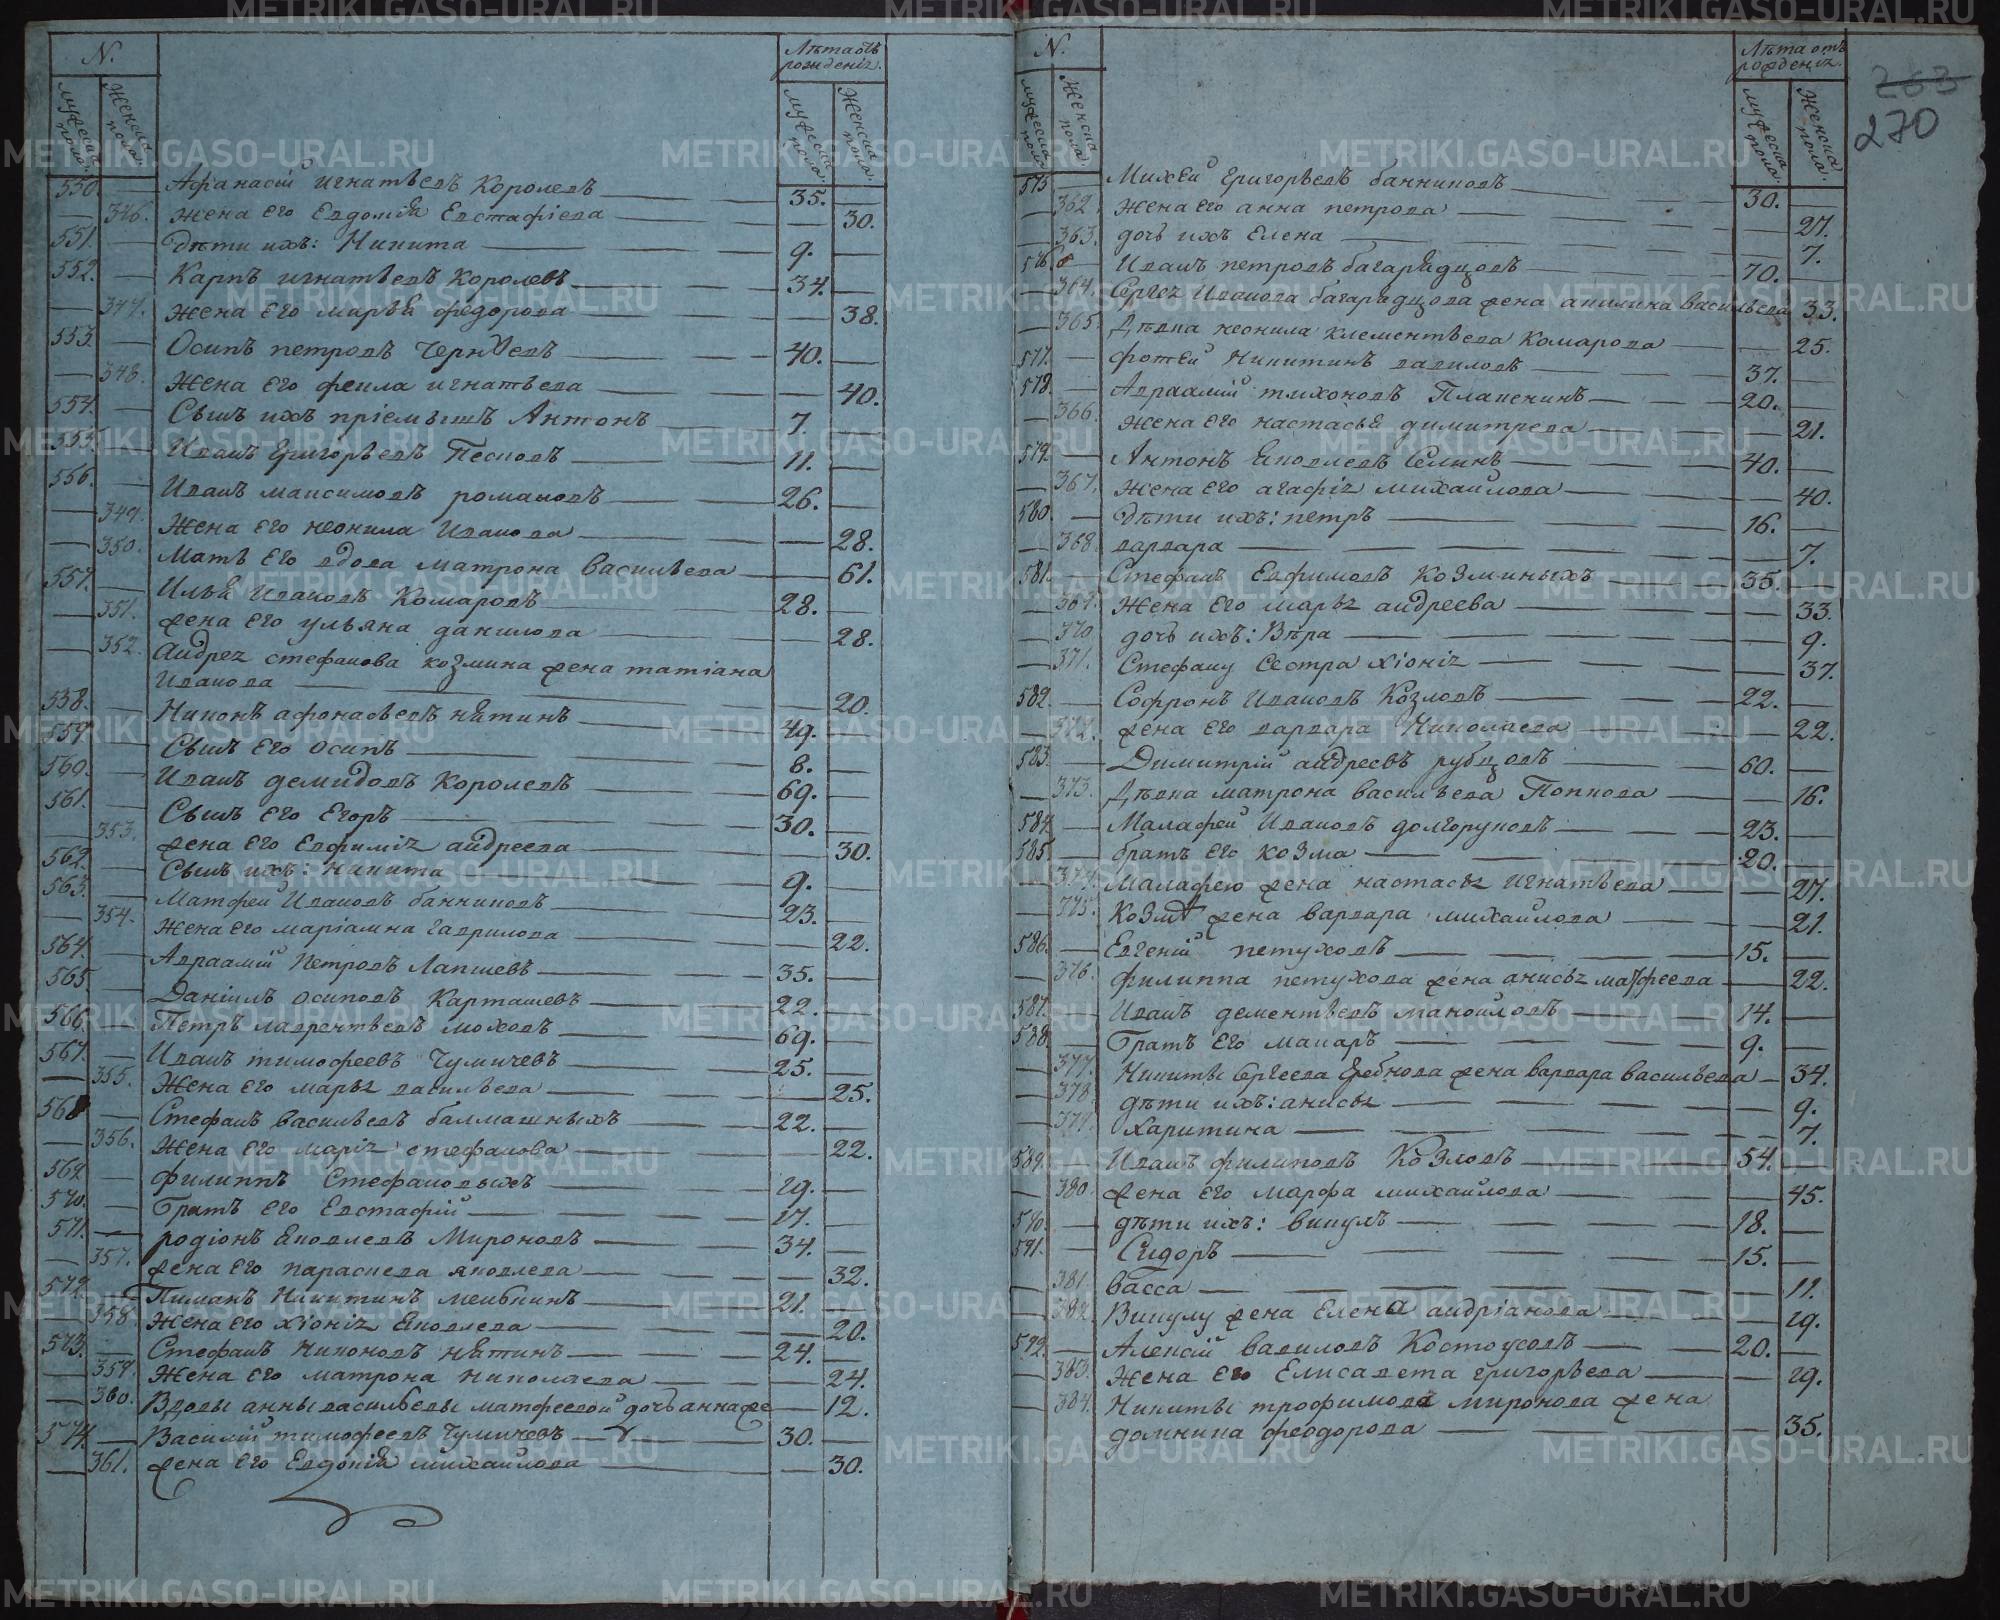 N.
Лѣта отъ рожденія.
мужеска пола.
женска пола.
мужеска пола.
женска пола.
550. Афанасій игнатьевъ Королевъ 35.
346. жена его Евдокія Евстафіева 30.
551. дѣти ихъ: Никита 9.
552. Карпъ игнатьевъ Королевъ 34.
347. жена его марья федорова 38.
553. Осипъ петровъ 40.
348. жена его феила игнатьева 40.
554. Сынъ ихъ пріемышъ Антонъ 7.
555. Иванъ Григорьевъ Песковъ 11.
556. Иванъ максимовъ романовъ 26.
349. жена его неонила Иванова 28.
350. мать его вдова матрона васильева 61.
557. Илья Ивановъ Комаровъ 28.
351. жена его ульяна данилова 28.
352. Андрея стефанова козмина жена татіана
Иванова 20.
558. Никонъ афонасьевъ нятинъ 49.
559. Сынъ его осипъ 8.
560. Иванъ демидовъ Королевъ 69.
561. Сынъ его Егоръ 30.
353. жена его Евфимія андреева 30.
562. Сынъ ихъ: Никита 9.
563. Матфей Ивановъ банниковъ 23.
354. жена его маріамна гаврилова 22.
564. Авраамій Петровъ Лапшевъ 35.
565. Даніилъ осиповъ Карташевъ 22.
566. Петръ лаврентьевъ моховъ 69.
567. Иванъ тимофеевъ Чумичевъ 25.
355. жена его марья васильева 25.
568 Стефанъ васильевъ балмашныхъ 22.
356. жена его марія стефанова 22.
569. филиппъ Стефановыхъ 19.
570. Братъ его Евстафій 17.
571. родіонъ яковлевъ Мироновъ 34.
357. жена его параскева яковлева 32.
572. Пиманъ Никитинъ 21.
358. жена его хіонія яковлева 20.
573. Стефанъ Никоновъ нятинъ 24.
359. жена его матрона николаева 24.
360. Вдовы анны васильевы матфеевой дочь анна 12.
574. Василій тимофеевъ Чумичевъ 30.
361. жена его Евдокія михайлова 30.
N.
Лѣта отъ рожденія.
263
270
мужеска пола.
женска пола.
мужеска пола.
женска пола.
575 Михей григорьевъ банниковъ 30.
362. жена его анна петрова 27.
363. дочь ихъ елена 7.
576. Иванъ петровъ багаряцовъ 70.
364. Сергея Иванова багаряцова жена акилина васильева 33.
365. Дѣвка неонила клементьева Комарова 25.
577. фотей Никитинъ вавиловъ 37.
578. Авраамій тихоновъ Плакенинъ 20.
366. жена его настасья димитрева 21.
579. Антонъ яковлевъ Селинъ 40.
367. жена его агафія михайлова 40.
580. дѣти ихъ: петръ 16.
368. варвара 7.
581. Стефанъ Евфимовъ козминыхъ 35.
369. жена его марья андреева 33.
370. дочь ихъ: Вѣра 9.
371. Стефану сестра хіонія 37.
582. Софронъ Ивановъ Козловъ 22.
372. жена его варвара Николаева 22.
583. Димитрій андреевъ рубцовъ 60.
373. Дѣвка матрона васильева Попкова 16.
584. Малафей Ивановъ долгоруковъ 23.
585. братъ его козма 20.
374. Малафею жена настасья игнатьева 27.
375. Козмѣ жена варвара михайлова 21.
586. Евгеній петуховъ 15.
376. филиппа петухова жена анисья матфеева 22.
587. Иванъ дементьевъ манойловъ 14.
588. Братъ его макаръ 9.
377. Никиты сергеева жена варвара васильева 34.
378. дѣти ихъ: анисья 9.
379. харитина 7.
589. Иванъ филиповъ Козловъ 54.
380. жена его марфа михайлова 45.
590. дѣти ихъ: викулъ 18.
591. Сидоръ 15.
381. васса 11.
382. Викулу жена елена андріанова 19.
592. Алексій вавиловъ Костоусовъ 20.
383. жена его Елисавета григорьева 19.
384. Никиты трофимова миронова жена
домника феодорова 35.